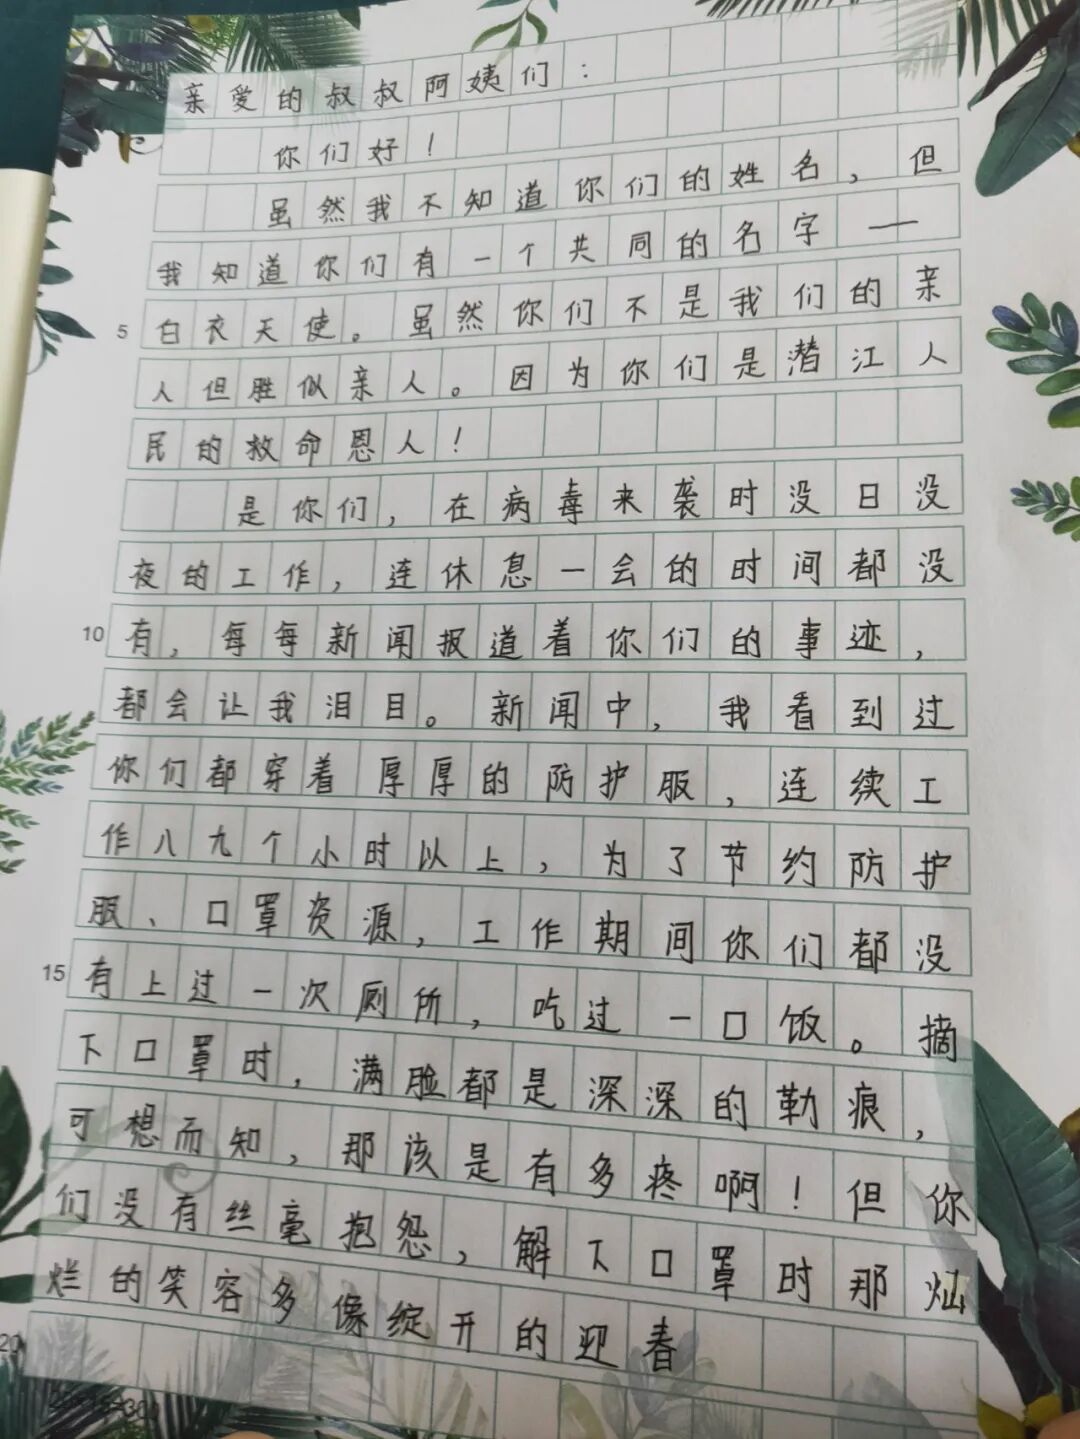 亲爱的叔叔阿姨们：
你们好！
虽然我不知道你们的姓名，但
我知道你们有一个共同的名字——
5 白衣天使。虽然你们不是我们的亲
人但胜似亲人。因为你们是潜江人
民的救命恩人！
是你们，在病毒来袭时没日没
夜的工作，连休息一会的时间都没
10 有，每每新闻报道着你们的事迹，
都会让我泪目。新闻中，我看到过
你们都穿着厚厚的防护服，连续工
作八九个小时以上，为了节约防护
服、口罩资源，工作期间你们都没
15 有上过一次厕所，吃过一口饭。摘
下口罩时，满脸都是深深的勒痕，
可想而知，那该是有多疼啊！但你
们没有丝毫抱怨，解下口罩时那灿
烂的笑容多像绽开的迎春
20